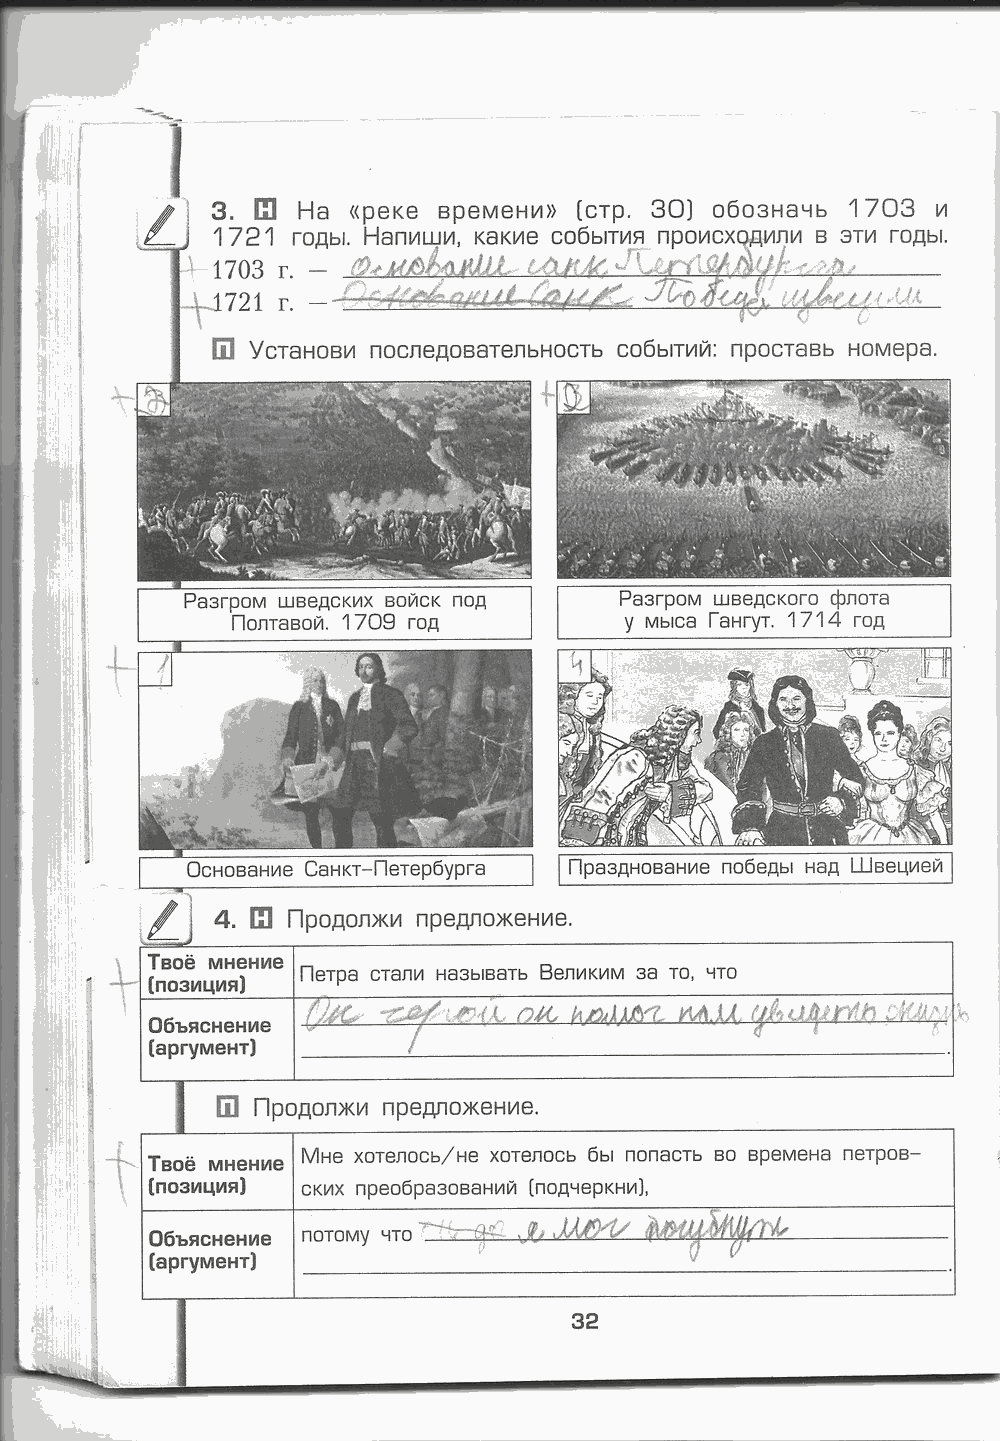 3. Н На «реке времени» (стр. 30) обозначь 1703 и
1721 годы. Напиши, какие события происходили в эти годы.
+ 1703 г. – Основание санк Петербурга
+ 1721 г. – Основание Санк Победа швецыи
П Установи последовательность событий: проставь номера.
+
+
Разгром шведских войск под
Полтавой. 1709 год
Разгром шведского флота
у мыса Гангут. 1714 год
+ 1
4
Основание Санкт-Петербурга
Празднование победы над Швецией
4. Н Продолжи предложение.
+ Твоё мнение
(позиция)
Петра стали называть Великим за то, что
Объяснение
(аргумент)
Он герой он помог нам увидеть жизнь
.
П Продолжи предложение.
+ Твоё мнение
(позиция)
Мне хотелось/не хотелось бы попасть во времена петров-
ских преобразований (подчеркни),
Объяснение
(аргумент)
потому что я мог погубнут
.
32